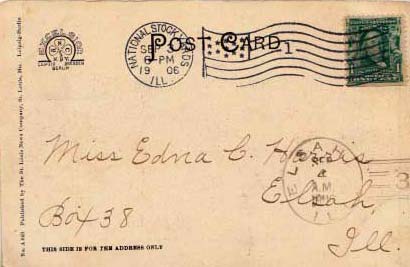 EXCELSIOR
LEIPZIG DRESDEN
BERLIN
NATIONAL STOCK YARDS
SEP 3
6-PM
1906
ILL.
POST CARD
1
Miss Edna C. Harris
Elsah,
Box 38
Ill.
ELSAH
SEP
4
A.M.
ILL
3
THIS SIDE IS FOR THE ADDRESS ONLY
Published by The St. Louis News Company, St. Louis, Mo. Leipzig-Berlin